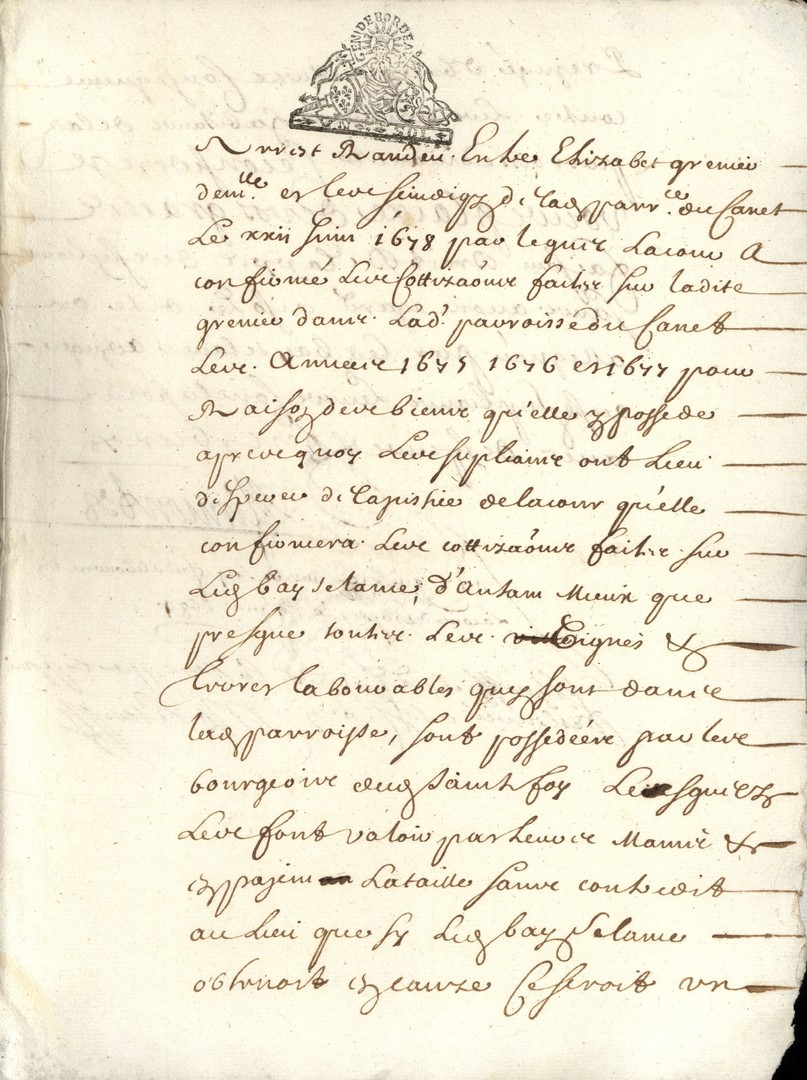 GEN DE BORDEAUX
VN SOL
Arrest Randeu Entre Elizabet grenier
dem.lle et les scindiqz de lad parr.ce du Canet
Le xxii Juin 1678 par lequel La cour A
confirmé Les Cottizaõns faites sur ladite
grenier dans Lad. parroisse du Canet
Les Années 1675 1676 et 1677 pour
Raison des biens qu'elle y possede
apres quoy Les suplians ont Lieu
d'esperer de la justice de la cour qu'elle
confirmera Les cottizaõns faites sur
Led bay d'autant Mieux que
presque toutes Les vignes &
terres labourables quy sont dans
lad parroisse, sont possedées par les
bourgeois dud Saint foy Lesquels
Les font valoir par Leurs Mains &
en payent La taille sans contredit
au Lieu que sy Led bay
obtenoit en cauze Ce seroit un